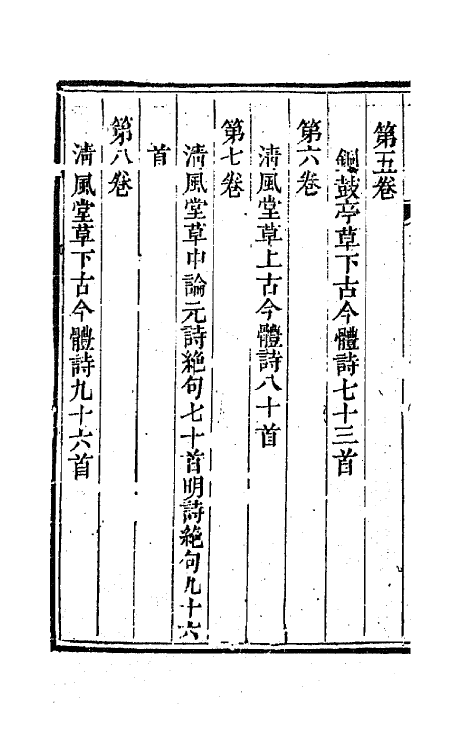 第五卷
銅鼓亭草下古今體詩七十三首
第六卷
清風堂草上古今體詩八十首
第七卷
清風堂草中論元詩絶句七十首明詩絶句九十六
首
第八卷
清風堂草下古今體詩九十六首